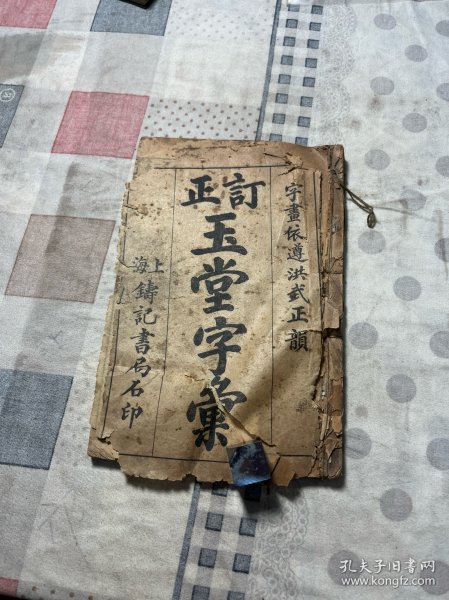 字畫依遵洪武正韻
訂正
玉堂字彙
上海
鑄記書局石印
孔夫子旧书网
www.kongfz.com